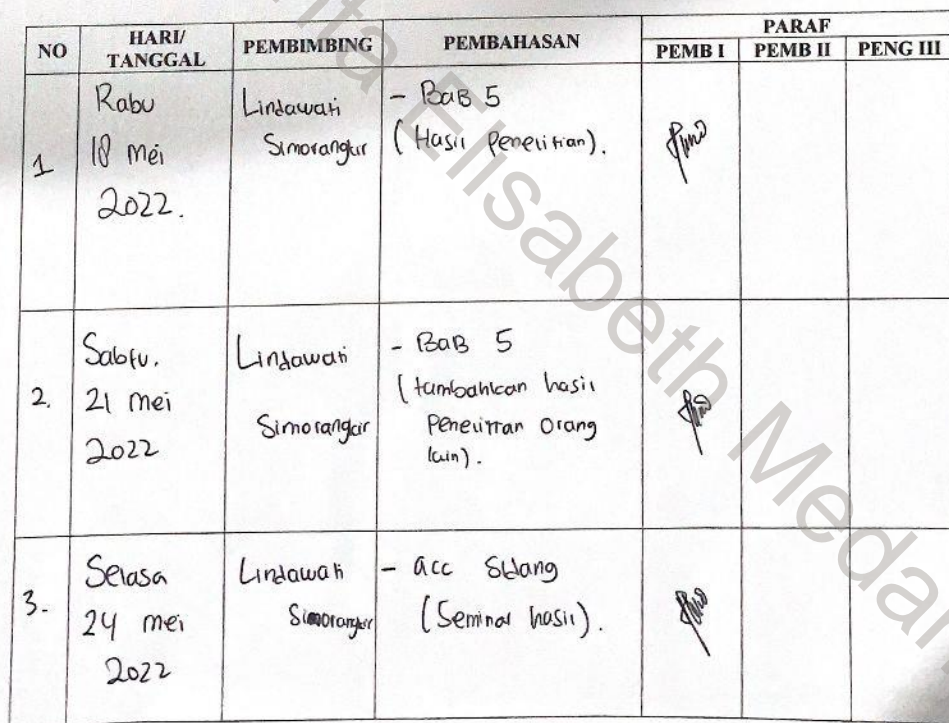 NO HARI/ TANGGAL PEMBIMBING PEMBAHASAN PARAF
PEMB I PEMB II PENG III
1 Rabu 18 Mei 2022. Lindawati Simorangkir - BaB 5 (Hasil Penelitian).
2. Sabtu. 21 Mei 2022 Lindawati Simorangkir - BaB 5 (tambahkan hasil Penelitian Orang lain).
3. Selasa 24 mei 2022 Lindawati Simorangkir - acc Sidang (Seminar hasil).
ita Elisabeth Medan